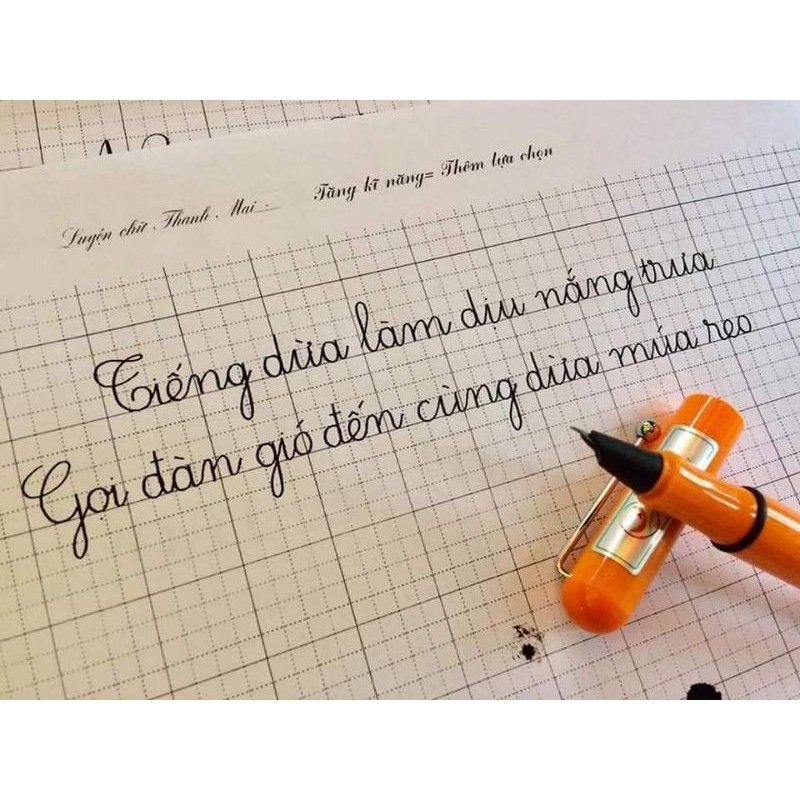 Luyện chữ Thanh Mai Tăng kĩ năng= Thêm lựa chọn
Tiếng dừa làm dịu nắng trưa
Gọi đàn gió đến cùng dừa múa reo